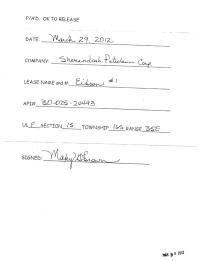 P/A'D. OK TO RELEASE
DATE: March 29, 2012
COMPANY: Shenandoah Petroleum Corp
LEASE NAME and #: Eidson #1
API# 30-025-20493
UL F SECTION 15 TOWNSHIP 16S RANGE 35E
SIGNED:
2012